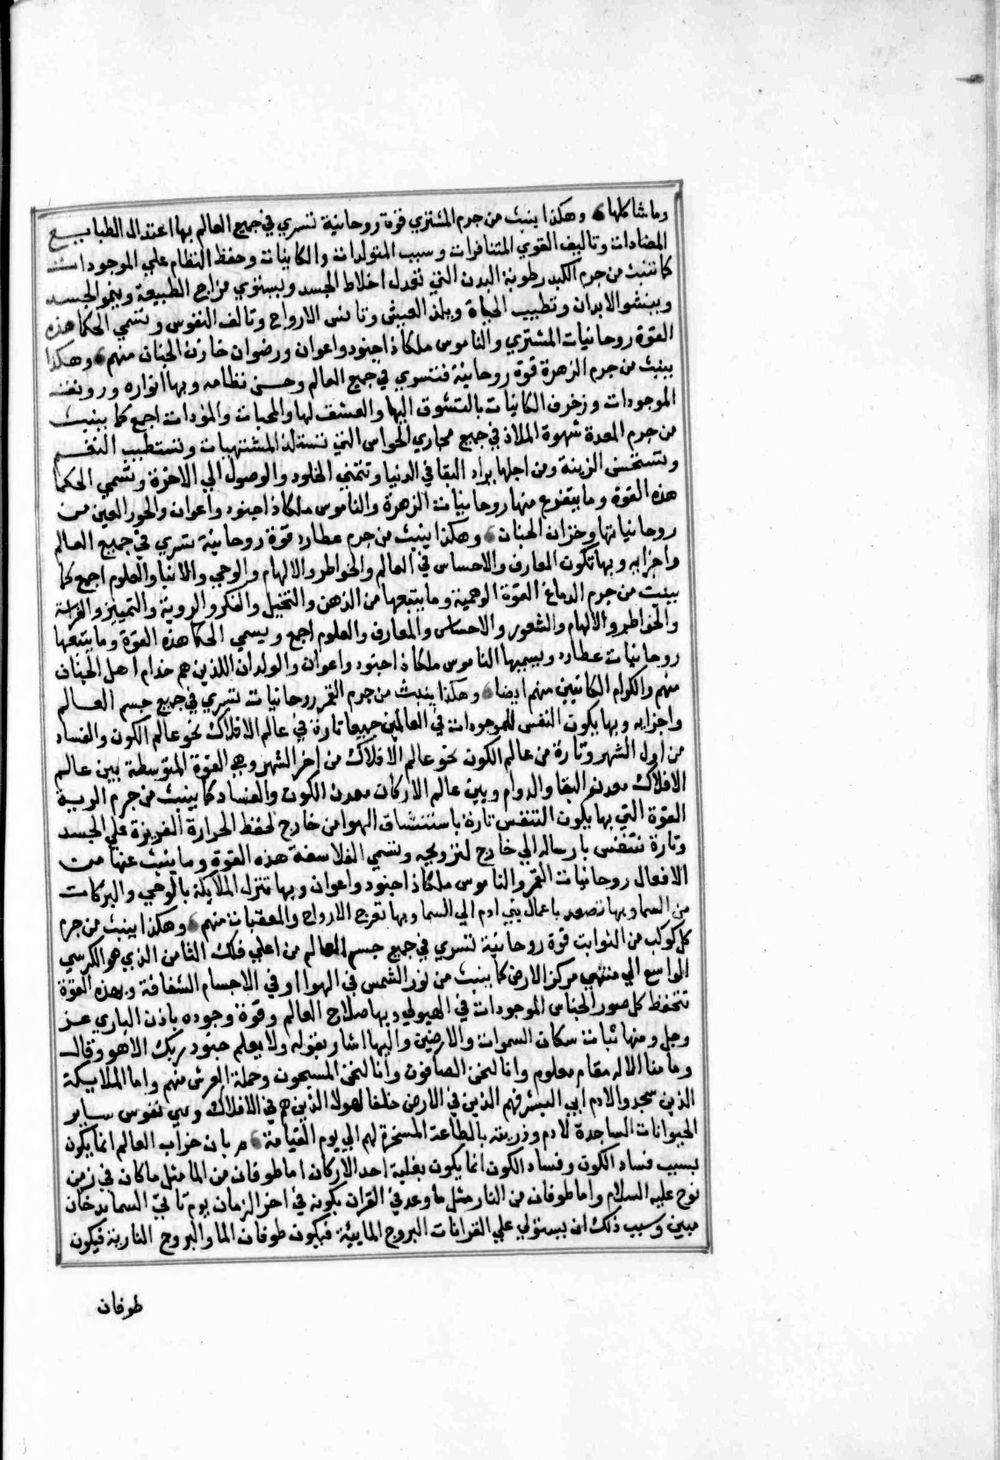 وما شاكلها وهكذا ينبث من جرم المشتري قوة روحانية تسري في جميع العالم بها اعتدال الطبايع
المضادات وتاليف القوي المتنافرات وسبب المتولدات والكاينات وحفظ النظام علي الموجودات
كما تنبث من جرم الكبد رطوبة البدن التي تعدل اخلاط الجسد ويستوي مزاج الطبيعة وينمو الجسد
وينشو الابدان وتطيب الحياة ويلذ العيش وتانس الارواح وتالف النفوس وتسمي الحكما هذه
القوة روحانيات المشتري والناموس ملكا ذا جنود واعوان ورضوان خازن الجنان منهم وهكذا
ينبث من جرم الزهرة قوة روحانية فتسري في جميع العالم وحسن نظامه وبها انواره ورونقه
الموجودات وزخرف الكاينات بالتشوق اليها والعشق لها والمحبات والمؤدات اجمع كما ينبث
من جرم المعدة شهوة الملاذ في جميع مجاري الحواس التي تستلذ المشتهيات وتستطيب النفس
وتستحسن الزينة ومن اجلها يراد البقا في الدنيا وتتمني الخلود والوصول الي الاخرة وتسمي الحكما
هذه القوة وما يتفرع منها روحانيات الزهرة والناموس ملكا ذا جنود واعوان والحور العين من
روحانياتها وخزان الجنان وهكذا ينبث من جرم عطارد قوة روحانية تسري في جميع العالم
واجزايه وبها تكون المعارف والاحساس في العالم والخواطر والالهام والوحي والانبا والعلوم اجمع كما
ينبث من جرم الدماغ القوة الوهمية وما يتبعها من الذهن والتخيل والفكر والروية والتمييز والفراسة
والخواطر والالهام والشعور والاحساس والمعارف والعلوم اجمع ويسمي الحكما هذه القوة وما يتبعها
روحانيات عطارد ويسميها الناموس ملكا ذا جنود واعوان والولدان اللذين هم خدام اهل الجنان
منهم والكرام الكاتبين منهم ايضا وهكذا ينبث من جرم القمر روحانيات تسري في جميع جسم العالم
واجزايه وبها يكون النفس للموجودات في العالمين جميعا تارة في عالم الافلاك نحو عالم الكون والفساد
من اول الشهر وتارة من عالم الكون نحو عالم الافلاك من اخر الشهر وهي القوة المتوسطة بين عالم
الافلاك معدن البقا والدوام وبين عالم الاركان معدن الكون والفساد كما ينبث من جرم الرية
القوة التي بها يكون التنفس تارة باستنشاق الهوا من خارج لحفظ الحرارة الغريزة علي الجسد
وتارة تتنفس بارساله الي خارج لترويحه وتسمي الفلاسفة هذه القوة وما ينبث عنها من
الافعال روحانيات القمر والناموس ملكا ذا جنود واعوان وبها تتنزل الملايكة بالوحي والبركات
من السما وبها تصعد باعمال بني ادم الي السما وبها تعرج الارواح والمعقبات منهم وهكذا ينبث من جرم
كل كوكب من الثوابت قوة روحانية تسري في جميع جسم العالم من اعلي فلك الثامن الذي هو الكرسي
الواسع الي منتهي مركز الارض كما ينبث من نور الشمس في الهوا او في الاجسام الشفافة وبهذه القوة
تنحفظ كل صور اجناس الموجودات في الهيولي وبها صلاح العالم وقوة وجوده باذن الباري عز
وجل ومنها ثبات سكان السموات والارضين واليها اشار بقوله ولا يعلم جنود ربك الا هو وقال
وما منا الا له مقام معلوم وانا لنحن الصافون وانا لنحن المسبحون وحملة العرش منهم واما الملايكة
الذين سجدوا لادم ابي البشر فهم الذين في الارض خلفا لهولا الذين هم في الافلاك وهي نفوس ساير
الحيوانات الساجدة لادم وذريته بالطاعة المسخرة لهم الي يوم القيامة بان خراب العالم انما يكون
بسبب فساد الكون وفساد الكون انما يكون بغلبة احد الاركان اما طوفان من الما مثل ما كان في زمن
نوح عليه السلام واما طوفان من النار مثل ما وعد في القران بكونه في اخر الزمان يوم تاتي السما بدخان
مبين وسبب ذلك ان يستولي علي القرانات البروج المايية فيكون طوفان الما والبروج النارية فيكون
طوفان